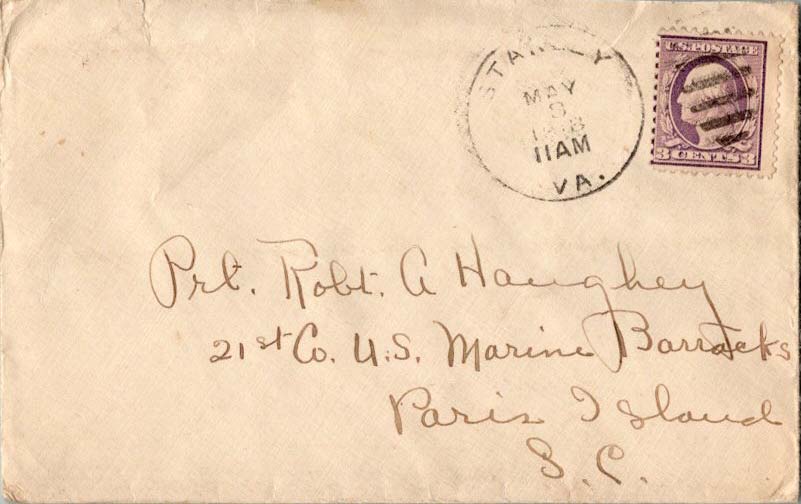 STANLEY
MAY
8
1918
11AM
VA.
U.S. POSTAGE
3 CENTS 3
Prt. Robt. A Haughey
21st Co. U.S. Marine Barracks
Paris Island
S.C.